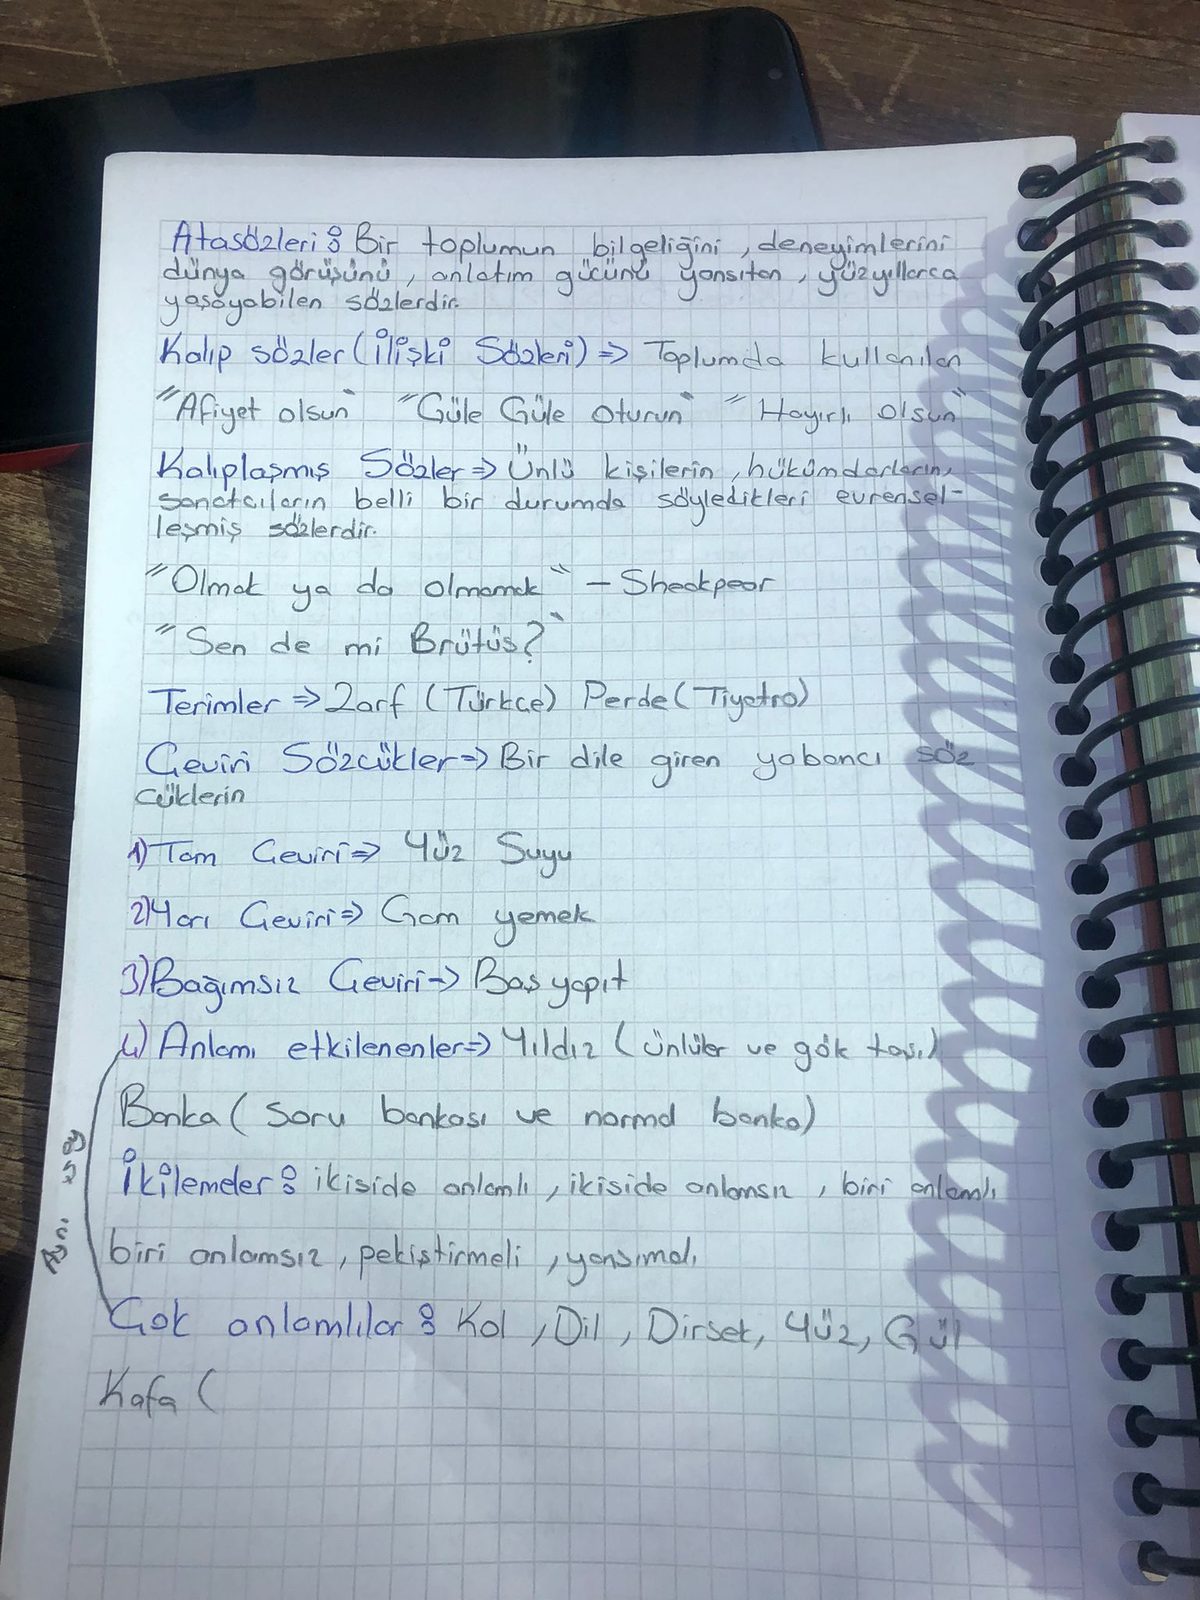 Atasözleri : Bir toplumun bilgeliğini , deneyimlerini
dünya görüşünü , anlatım gücünü yansıtan , yüzyıllarca
yaşayabilen sözlerdir.
Kalıp sözler (İlişki Sözleri) => Toplumda kullanılan
"Afiyet olsun" "Güle Güle Oturun" "Hayırlı olsun"
Kalıplaşmış Sözler => Ünlü kişilerin , hükümdarların,
sanatcıların belli bir durumda söyledikleri evrensel-
leşmiş sözlerdir.
"Olmak ya da olmamak" - Sheakpear
"Sen de mi Brütüs?"
Terimler => Zarf (Türkce) Perde (Tiyatro)
Çeviri Sözcükler => Bir dile giren yabancı söz
cüklerin
1) Tam Çeviri => Yüz Suyu
2) Yarı Çeviri => Gam yemek
3) Bağımsız Çeviri -> Baş yapıt
4) Anlamı etkilenenler => Yıldız (ünlüler ve gök taşı)
Banka ( Soru bankası ve normal banka)
İkilemeler : ikiside anlamlı , ikiside anlamsız , biri anlamlı
biri anlamsız , pekiştirmeli , yansımalı
Çok anlamlılar : Kol , Dil , Dirsek, Yüz, Gül
Kafa (
Aynı